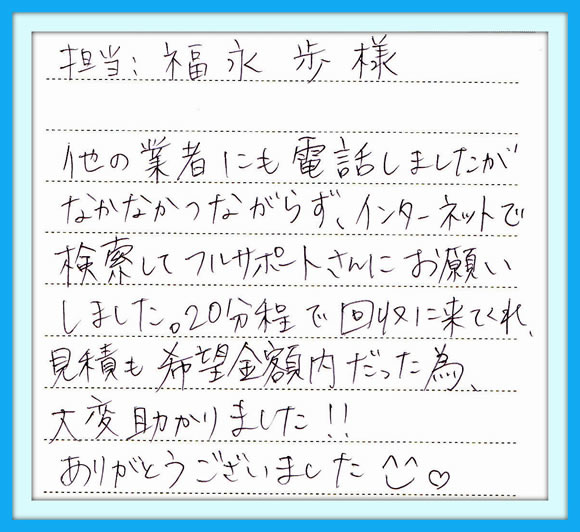 担当：福永 歩 様
他の業者にも電話しましたが
なかなかつながらず、インターネットで
検索してフルサポートさんにお願い
しました。20分程で回収に来てくれ、
見積も希望金額内だった為、
大変助かりました!!
ありがとうございました^^♡